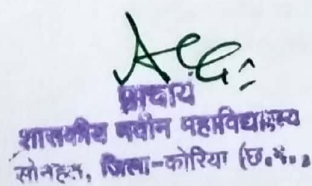 प्राचार्य
शासकीय नवीन महाविद्यालय
सोनहत, जिला-कोरिया (छ.ग.)